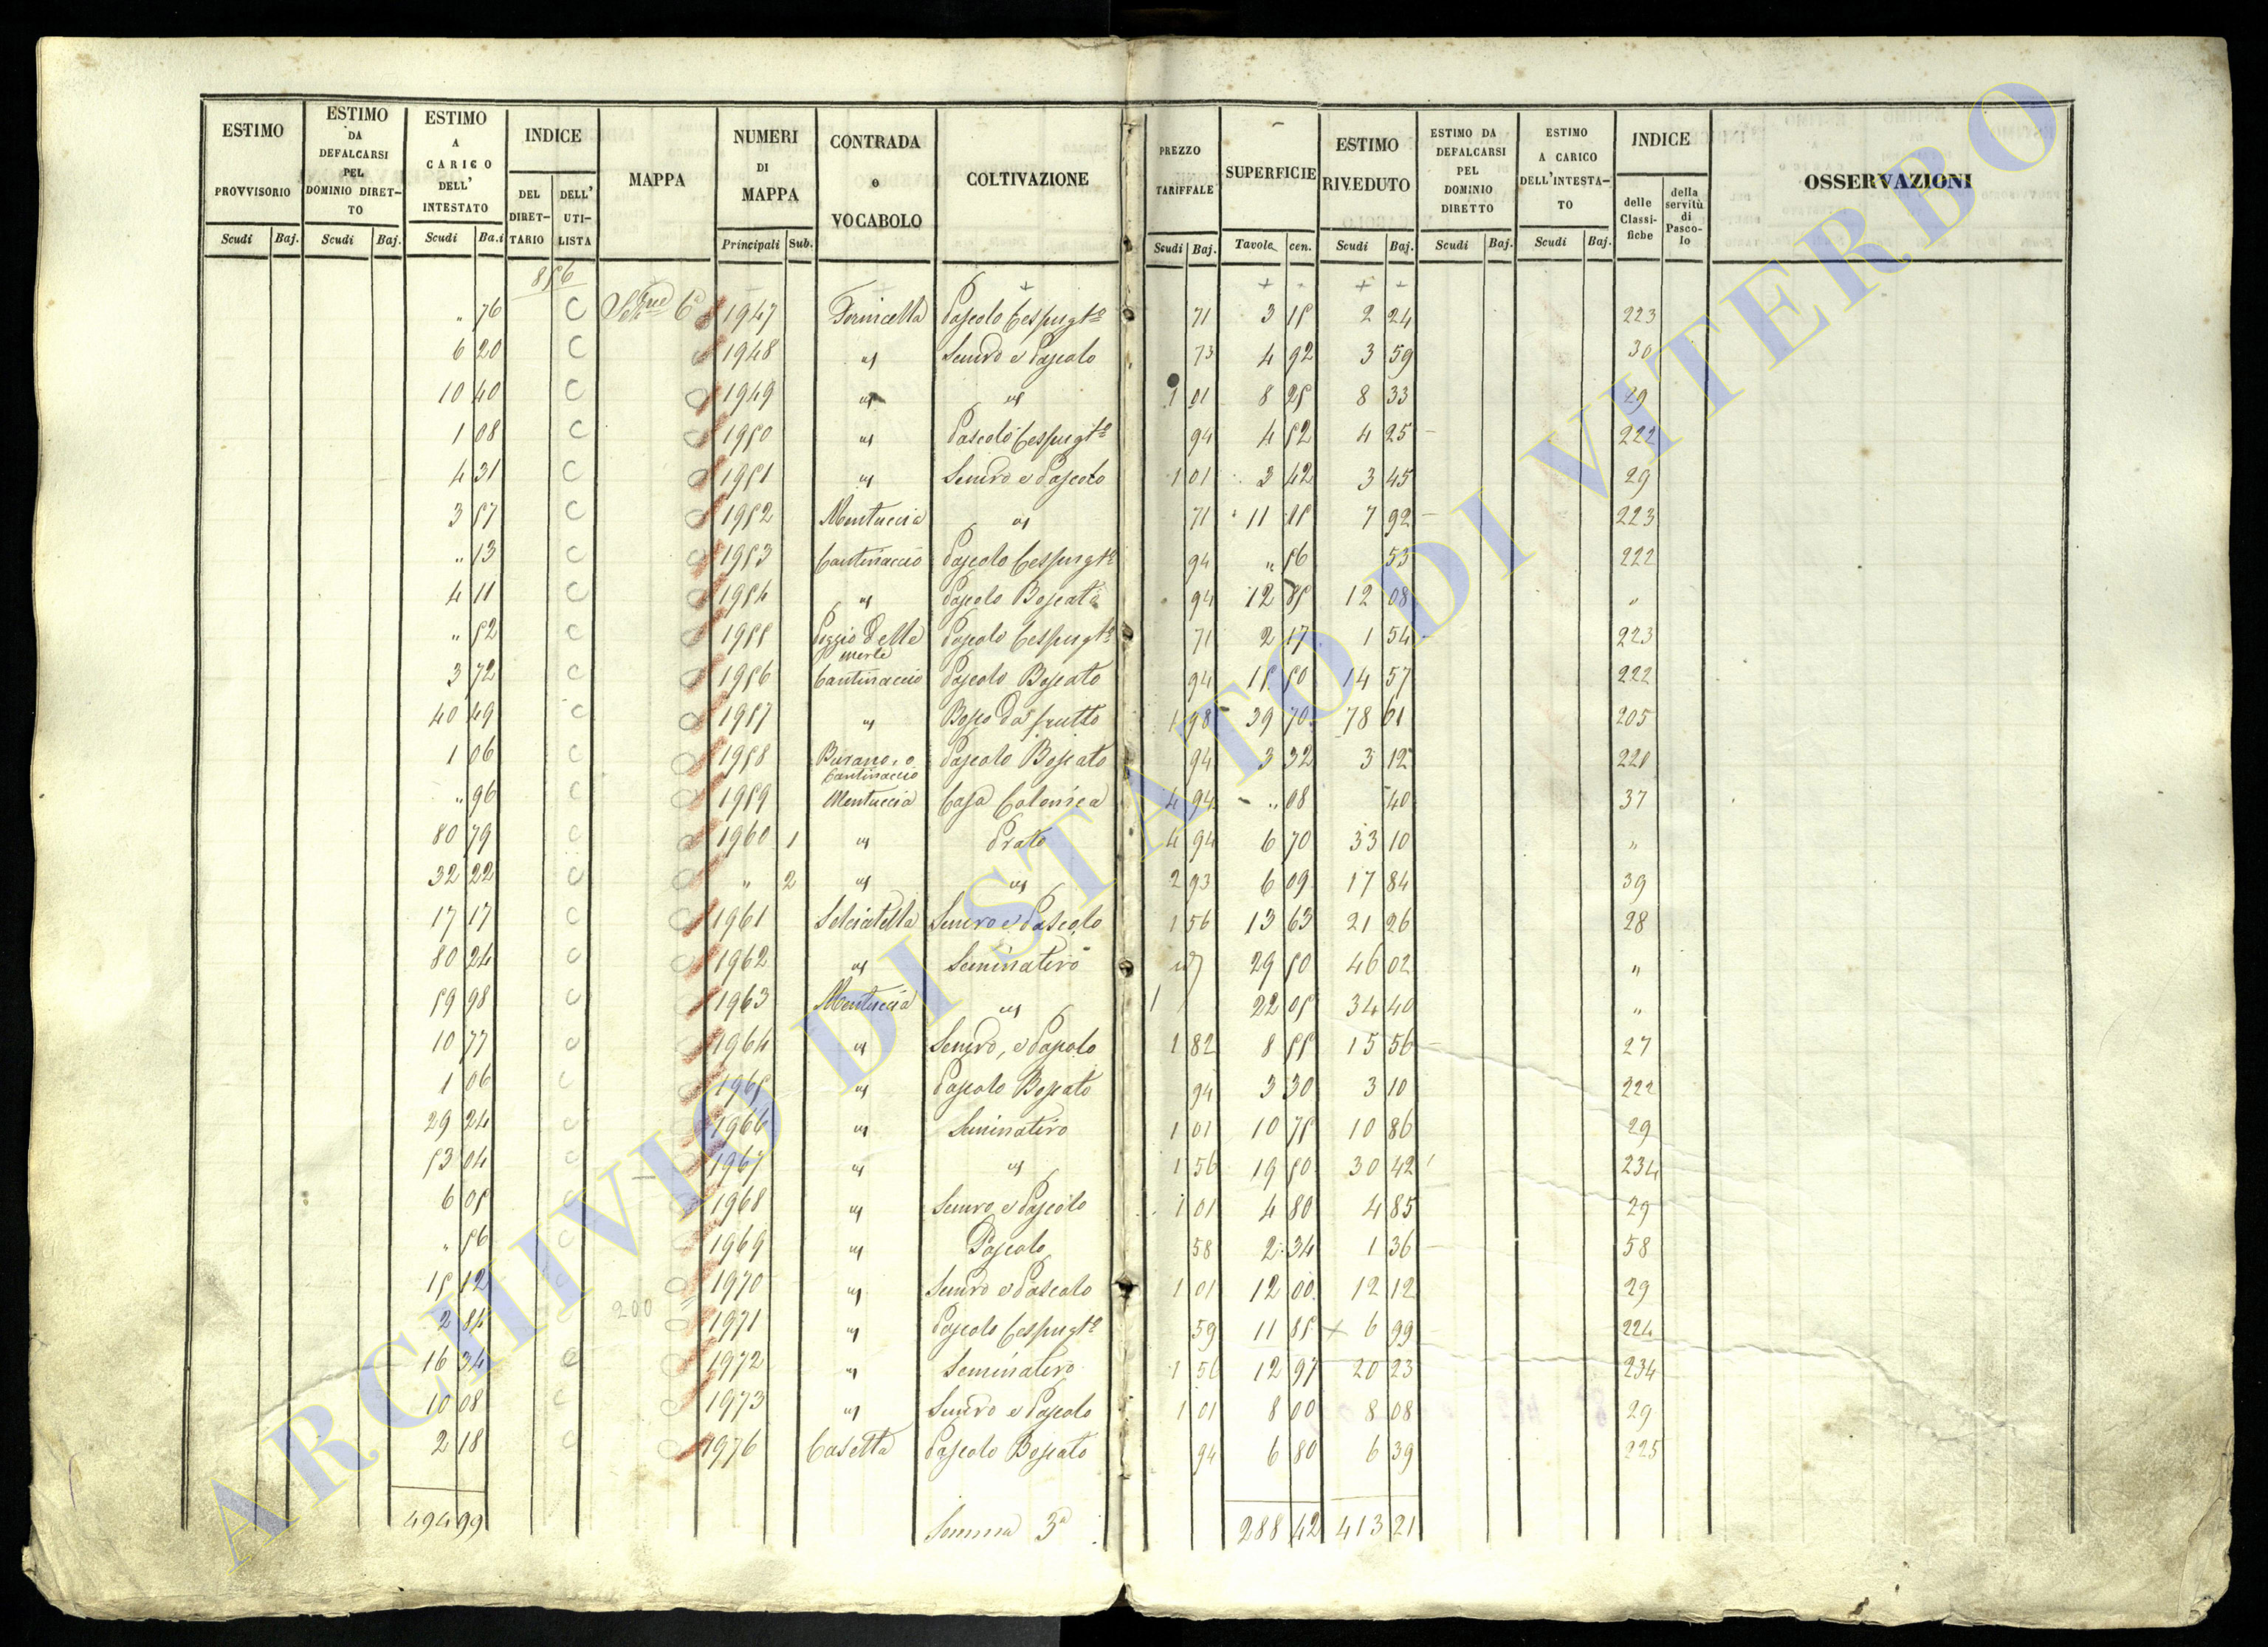 ESTIMO PROVVISORIO
ESTIMO DA DEFALCARSI PEL DOMINIO DIRET-TO
ESTIMO A CARICO DELL' INTESTATO
INDICE
DEL DIRET-TARIO
DELL' UTI-LISTA
MAPPA
NUMERI DI MAPPA
CONTRADA o VOCABOLO
COLTIVAZIONE
PREZZO TARIFFALE
SUPERFICIE
ESTIMO RIVEDUTO
ESTIMO DA DEFALCARSI PEL DOMINIO DIRETTO
ESTIMO A CARICO DELL'INTESTA-TO
INDICE
delle Classi-fiche
della servitù di Pasco-lo
OSSERVAZIONI
Scudi Baj. Scudi Baj. Scudi Ba.i Principali Sub. Scudi Baj. Tavole cen. Scudi Baj. Scudi Baj. Scudi Baj.
856
„ 76 C 6a 1947 Pascolo Cespugto 71 3 15 2 24 223
6 20 C 1948 " Semvo e Pascolo 73 4 92 3 59 30
10 40 C 1949 " " 1 01 8 25 8 33 29
1 08 C 1950 " Pascolo Cespugto 94 4 52 4 25 222
4 31 C 1951 " Semvo e Pascolo 1 01 3 42 3 45 29
3 57 C 1952 Mentuccia " 71 11 15 7 92 223
„ 13 C 1953 Cantinaccio Pascolo Cespugto 94 „ 56 53 222
4 11 C 1954 " Pascolo Boscato 94 12 85 12 08 "
„ 52 C 1955 Poggio delle Merle Pascolo Cespugto 71 2 17 1 54 223
3 72 C 1956 Cantinaccio Pascolo Boscato 94 15 50 14 57 222
40 49 C 1957 " Bosco da frutto 1 98 39 70 78 61 205
1 06 C 1958 Burano, o Cantinaccio Pascolo Boscato 94 3 32 3 12 221
„ 96 C 1959 Mentuccia Casa Colonica 4 94 „ 08 40 37
80 79 C 1960 1 " Prato 4 94 6 70 33 10 "
32 22 C " 2 " " 2 93 6 09 17 84 39
17 17 C 1961 Selciatella Semvo e Pascolo 1 56 13 63 21 26 28
80 24 C 1962 " Seminativo 29 50 46 02 "
59 98 C 1963 Mentuccia " 22 05 34 40 "
10 77 C 1964 " Semvo, e Pascolo 1 82 8 55 15 56 27
1 06 C 1965 " Pascolo Boscato 94 3 30 3 10 222
29 24 C 1966 " Seminativo 1 01 10 75 10 86 29
53 04 C 1967 " " 1 56 19 50 30 42 234
6 05 C 1968 " Semvo e Pascolo 1 01 4 80 4 85 29
„ 56 C 1969 " Pascolo 58 2 34 1 36 58
15 12 C 1970 " Semvo e Pascolo 1 01 12 00 12 12 29
2 85 C 200 1971 " Pascolo Cespugto 59 11 85 6 99 224
16 34 C 1972 " Seminativo 1 56 12 97 20 23 234
10 08 C 1973 " Semvo e Pascolo 1 01 8 00 8 08 29
2 18 C 1976 Casetta Pascolo Boscato 94 6 80 6 39 225
494 99 Somma 3a 288 42 413 21
ARCHIVIO DI STATO DI VITERBO